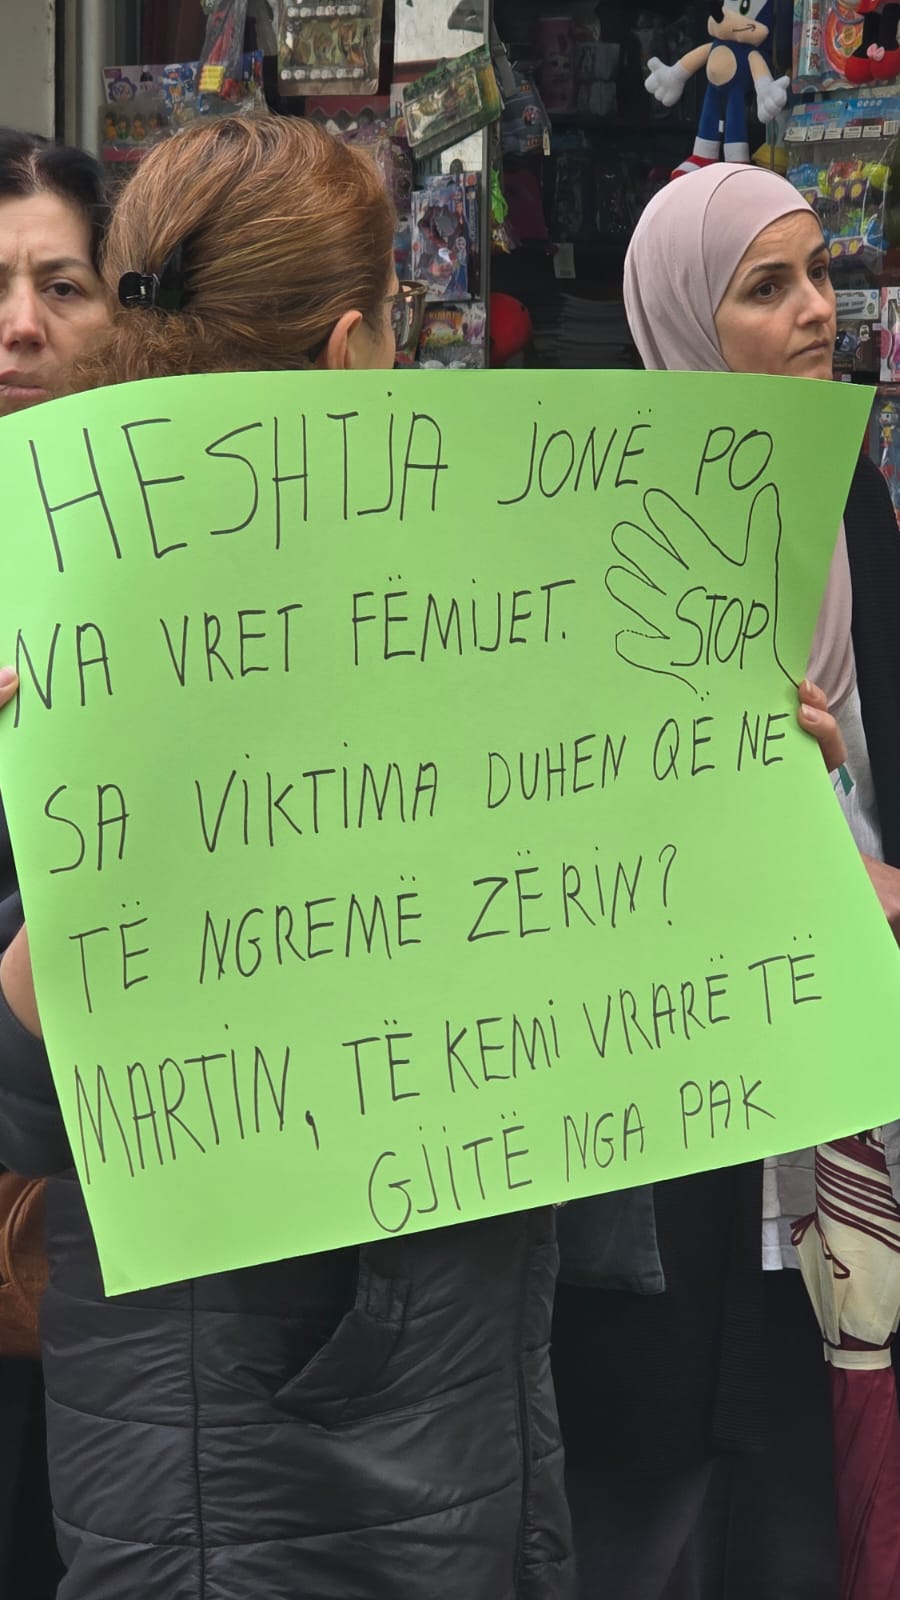 HESHTJA JONË PO
NA VRET FËMIJET.
STOP
SA VIKTIMA DUHEN QË NE
TË NGREMË ZËRIN?
MARTIN, TË KEMI VRARË TË
GJITË NGA PAK